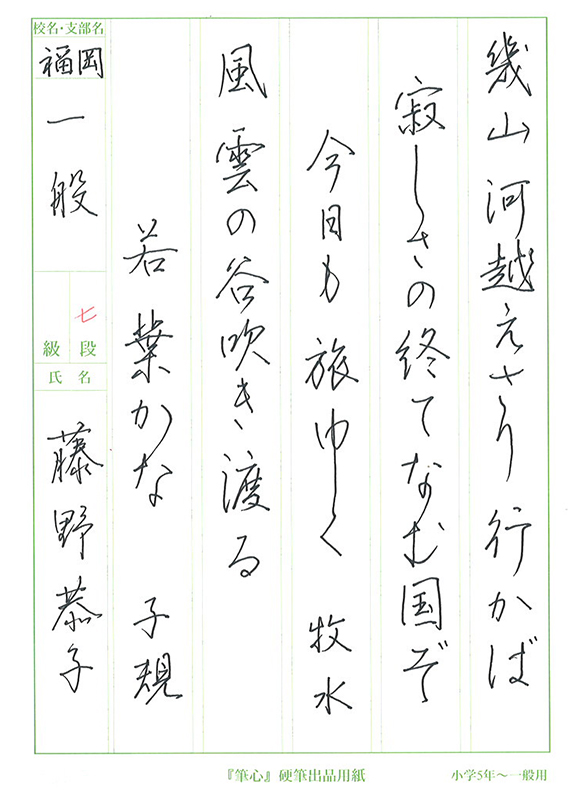 幾山河越えさり行かば
寂しさの終てなむ国ぞ
今日も旅ゆく 牧水
風雲の谷吹き渡る
若葉かな 子規
校名・支部名
福岡
一般
七
段
級
氏名
藤野恭子
『筆心』硬筆出品用紙
小学5年〜一般用